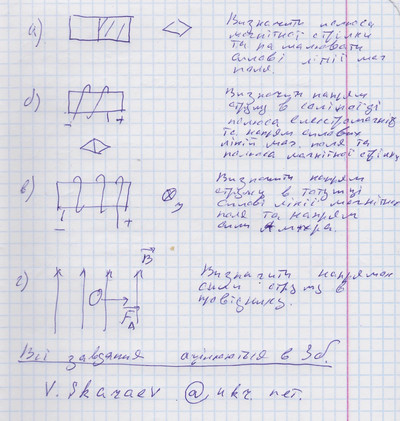 а) Визначити полюса
магнітної стрілки
та намалювати
силові лінії маг
поля.
б) Визначити напрям
струму в соленоїді
полюса електромагніту
та напрям силових
ліній маг. поля та
полюса магнітної стрілки
- +
в) Визначити напрям
струму в
силові лінії магнітного
поля та напрям
сили Ампера.
- +
г) Визначити напрямок
сили струму в
провіднику.
B
F
Всі завдання оцінюються в 3б.
V. Skaraev @ ukr. net.